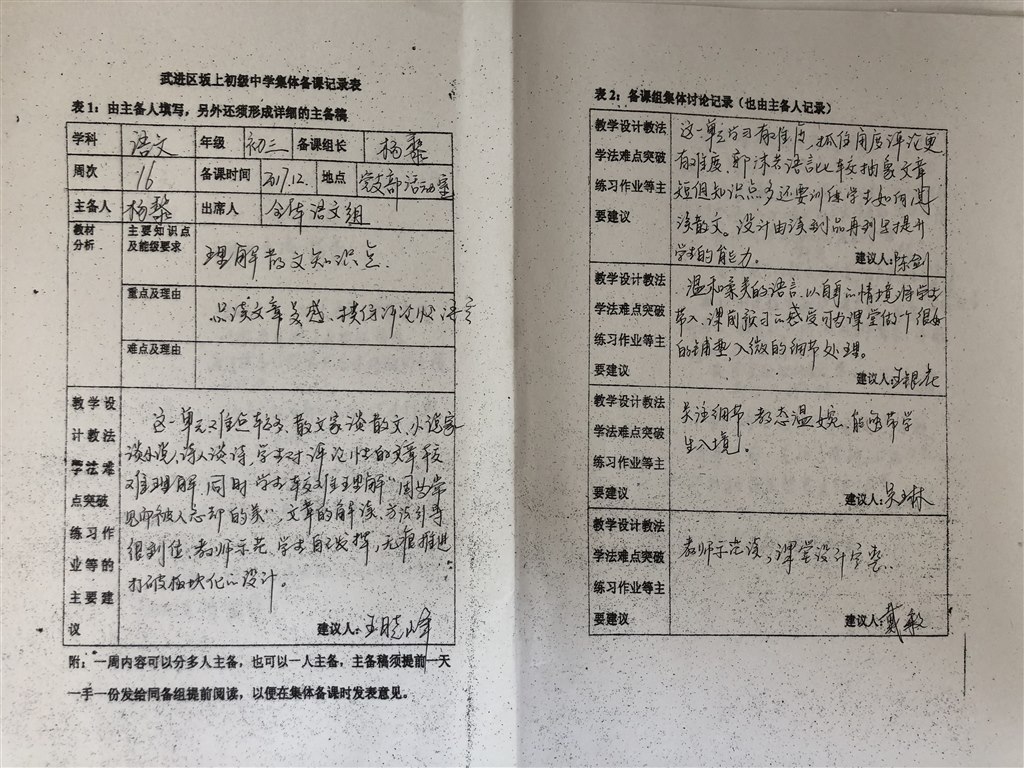 武进区坂上初级中学集体备课记录表
表1：由主备人填写，另外还须形成详细的主备稿
学科 语文 年级 初三 备课组长 杨黎
周次 16 备课时间 2017.12. 地点 党支部活动室
主备人 杨黎 出席人 全体语文组
教材分析 主要知识点及能级要求 理解散文知识点.
重点及理由 品读文章美感、
难点及理由
教学设计教法学法难点突破练习作业等的主要建议
这一单元难点较多、散文家谈散文,小说家
谈小说,诗人谈诗,学生对评论性的文章较
难理解,同时学生较难理解“因为常
见而被人忘却的美”,文章的解读、方法引导
很到位,教师示范,学生自己发挥,无痕推进
打破板块化的设计。
建议人:王晓峰
附：一周内容可以分多人主备，也可以一人主备，主备稿须提前一天
一手一份发给同备组提前阅读，以便在集体备课时发表意见。
表2：备课组集体讨论记录（也由主备人记录）
教学设计教法
学法难点突破
练习作业等主
要建议
这一单元学习有难点,抓住角度评论更
有难度,郭沫若语言比较抽象,文章
短但知识点多还要训练学生如何阅
读散文。设计由读到品再到写提升
学生的能力。
建议人:陈剑
教学设计教法
学法难点突破
练习作业等主
要建议
温和柔美的语言,以自身的情境将学生
带入、课前预习的感度可为课堂做个很好
的铺垫,入微的细节处理。
建议人:王银花
教学设计教法
学法难点突破
练习作业等主
要建议
关注细节、教态温婉、能够带学
生入境。
建议人:吴玉林
教学设计教法
学法难点突破
练习作业等主
要建议
教师示范读,课堂设计完整.
建议人:戴敏